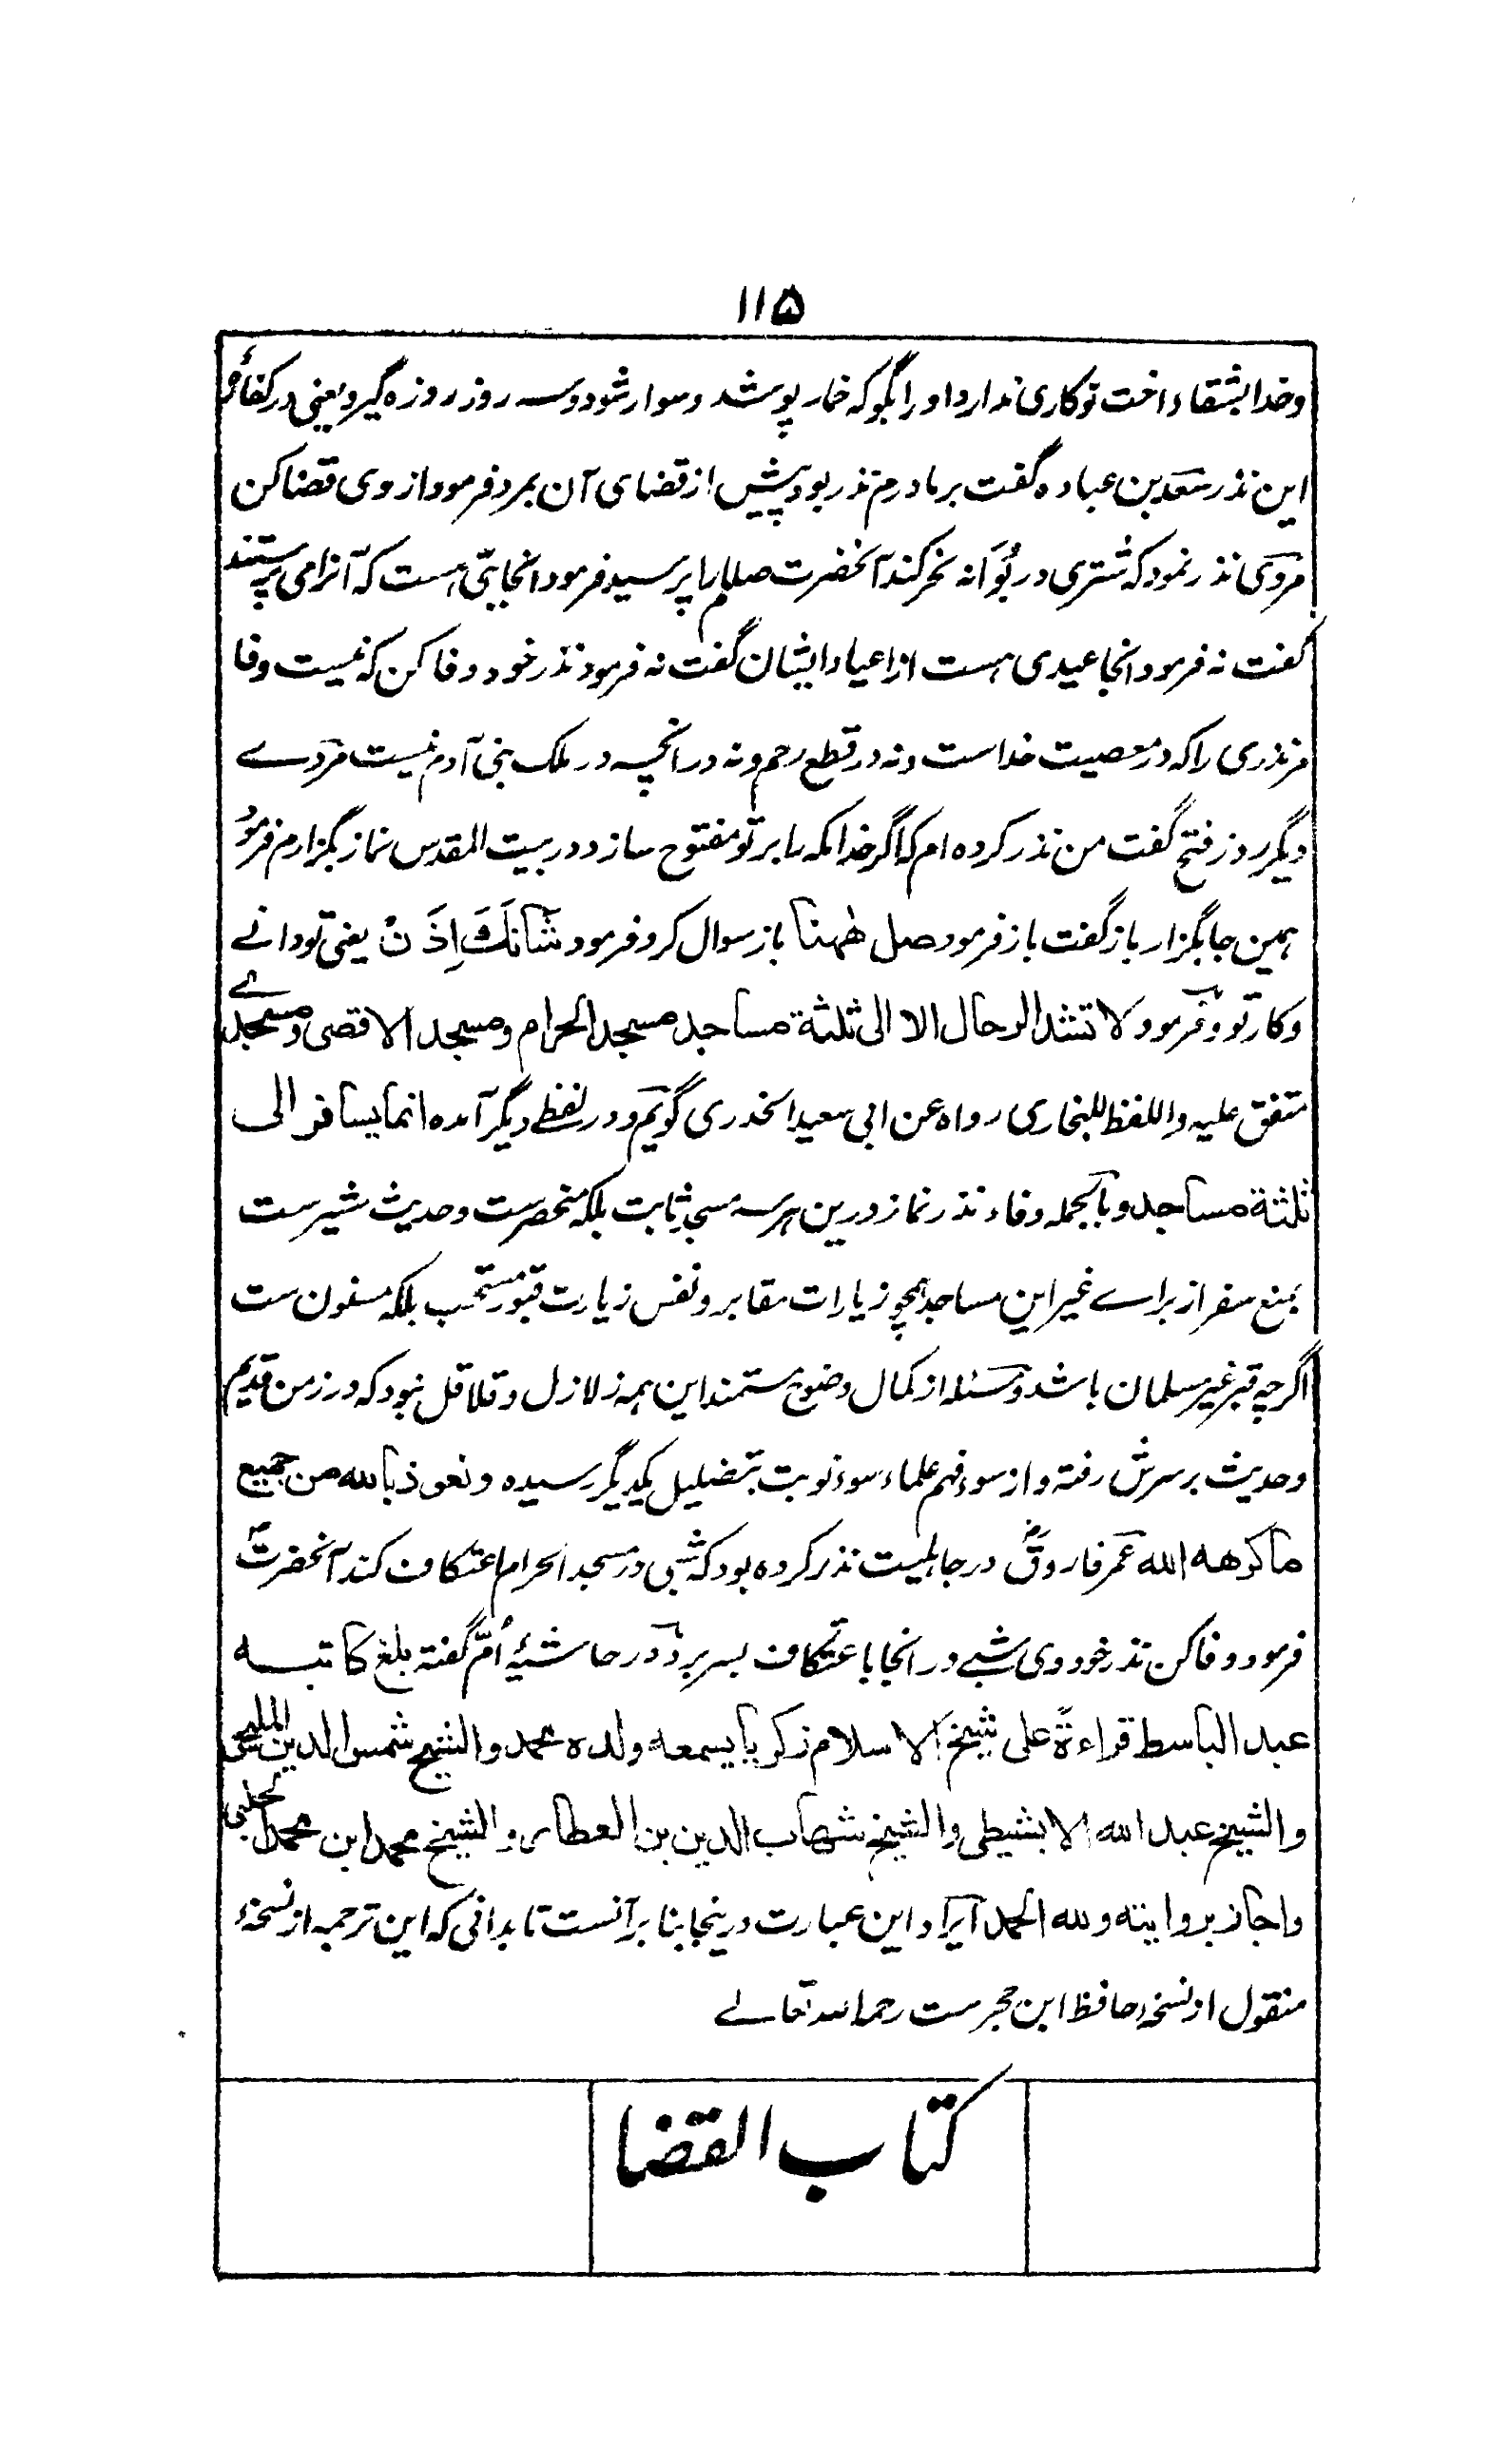 ۱۱۵
وخدا بشقاء اخت تو کاری ندارد او را بگو که خمار پوشد وسوار شود وسه روز روزه گیرد یعنی در کفارۀ
این نذر سعد بن عباده گفت بر مادرم نذر بود پیش از قضای آن بمرد فرمود از وی قضا کن
مردی نذر نمود که شتری در بُوَانه نحر کند آنحضرت صللم را پرسید فرمود انجا بتی هست که آنرا می پرستند
گفت نه فرمود انجا عیدی هست از اعیاد ایشان گفت نه فرمود نذر خود وفا کن که نیست وفا
مر نذری را که در معصیت خداست ونه در قطع رحم ونه در انچه در ملک بنی آدم نیست مردے
دیگر روز فتح گفت من نذر کرده ام که اگر خدا مکه را بر تو مفتوح سازد در بیت المقدس نماز بگزارم فرمود
همین جا بگزار باز گفت باز فرمود صل ههنا باز سوال کرد فرمود شَانَكَ اِذَنْ یعنی تو دانے
وکار تو وفرمود لا تشد الرحال الا الی ثلثة مساجد مسجد الحرام ومسجد الاقصی ومسجدے
متفق علیه واللفظ للبخاری رواه عن ابی سعید الخدری گویم ودر لفظ دیگر آمده انما یسافر الی
ثلثة مساجد وبالجمله وفاء نذر نماز درین هرسه مسجد ثابت بلکه منحصرست وحدیث مشیرست
بمنع سفر از براے غیر این مساجد همچو زیارات مقابر ونفس زیارت قبور مستحب بلکه مسنون ست
اگرچه قبر غیر مسلمان باشد ومسئله از کمال وضوح مستمند این همه زلازل وقلاقل نبود که در زمن قدیم
وحدیث بر سرش رفته واز سوء فهم علماء سوء نوبت بتضلیل یکدیگر رسیده ونعوذ بالله من جمیع
ما کرهه الله عمر فاروقؓ در جاهلیت نذر کرده بود که شبی در مسجد الحرام اعتکاف کند آنحضرتؐ
فرمود وفا کن نذر خود وی شبے در انجا باعتکاف بسر برد ودر حاشیۀ اُمّ گفته بلغ کاتبه
عبد الباسط قراءةً علی شیخ الاسلام زکریا یسمعه ولده محمد والشیخ شمس الدین الملیجی
والشیخ عبد الله الابشیطی والشیخ شهاب الدین بن العطار والشیخ محمد ابن محمد الحلبی
واجاز بروایته ولله الحمد ایراد این عبارت درینجا بنا برآنست تا بدانی که این ترجمه از نسخۀ
منقول از نسخۀ حافظ ابن حجرست رحمه الله تعالے
کتاب القضا